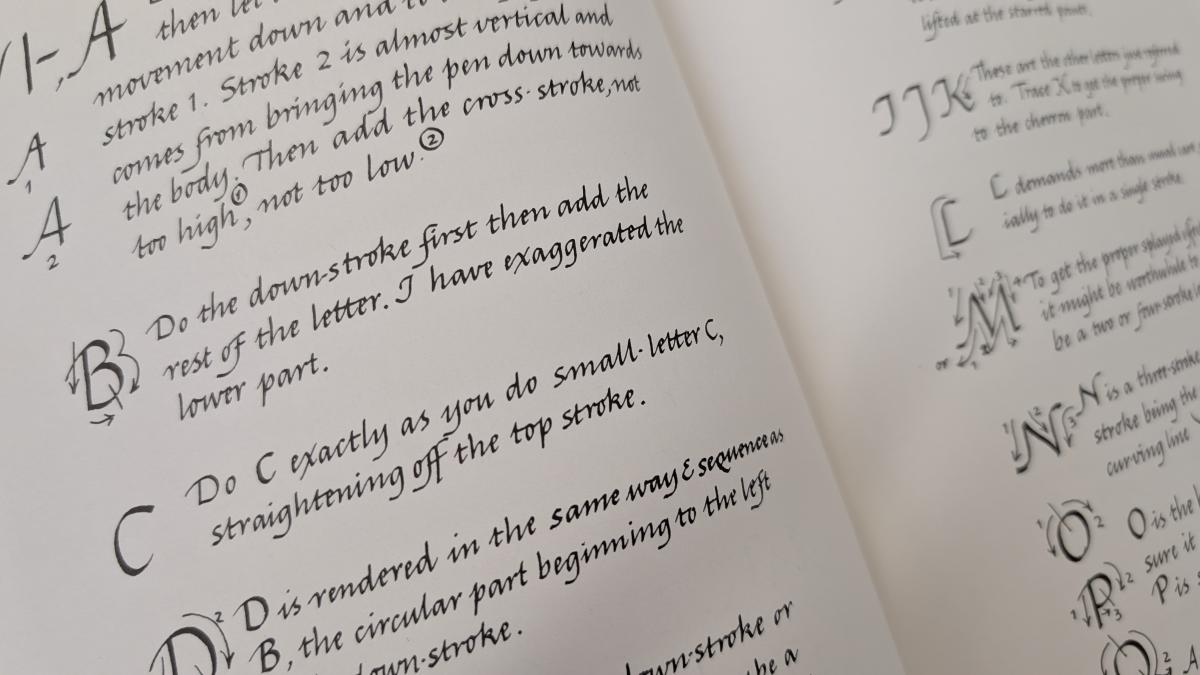 A then let
movement down and to
stroke 1. Stroke 2 is almost vertical and
comes from bringing the pen down towards
the body. Then add the cross-stroke, not
too high①, not too low.②
A
1
A
2
B
Do the down-stroke first then add the
rest of the letter. I have exaggerated the
lower part.
C
Do C exactly as you do small-letter C,
straightening off the top stroke.
D
2
D is rendered in the same way & sequence as
B, the circular part beginning to the left
down-stroke.
down-stroke or
be a
lifted at the starred point.
I J K
These are the other letters just referred
to. Trace K to get the proper
to the chevron part.
L
L demands more than usual care
ially to do it in a single stroke.
M
To get the proper splayed
it might be worthwhile to
be a two or four-stroke
or
N
1 2 3
N is a three-stroke
stroke being the
curving line
O
1 2
O is the
sure it
P
1 2 3
P is
2
A